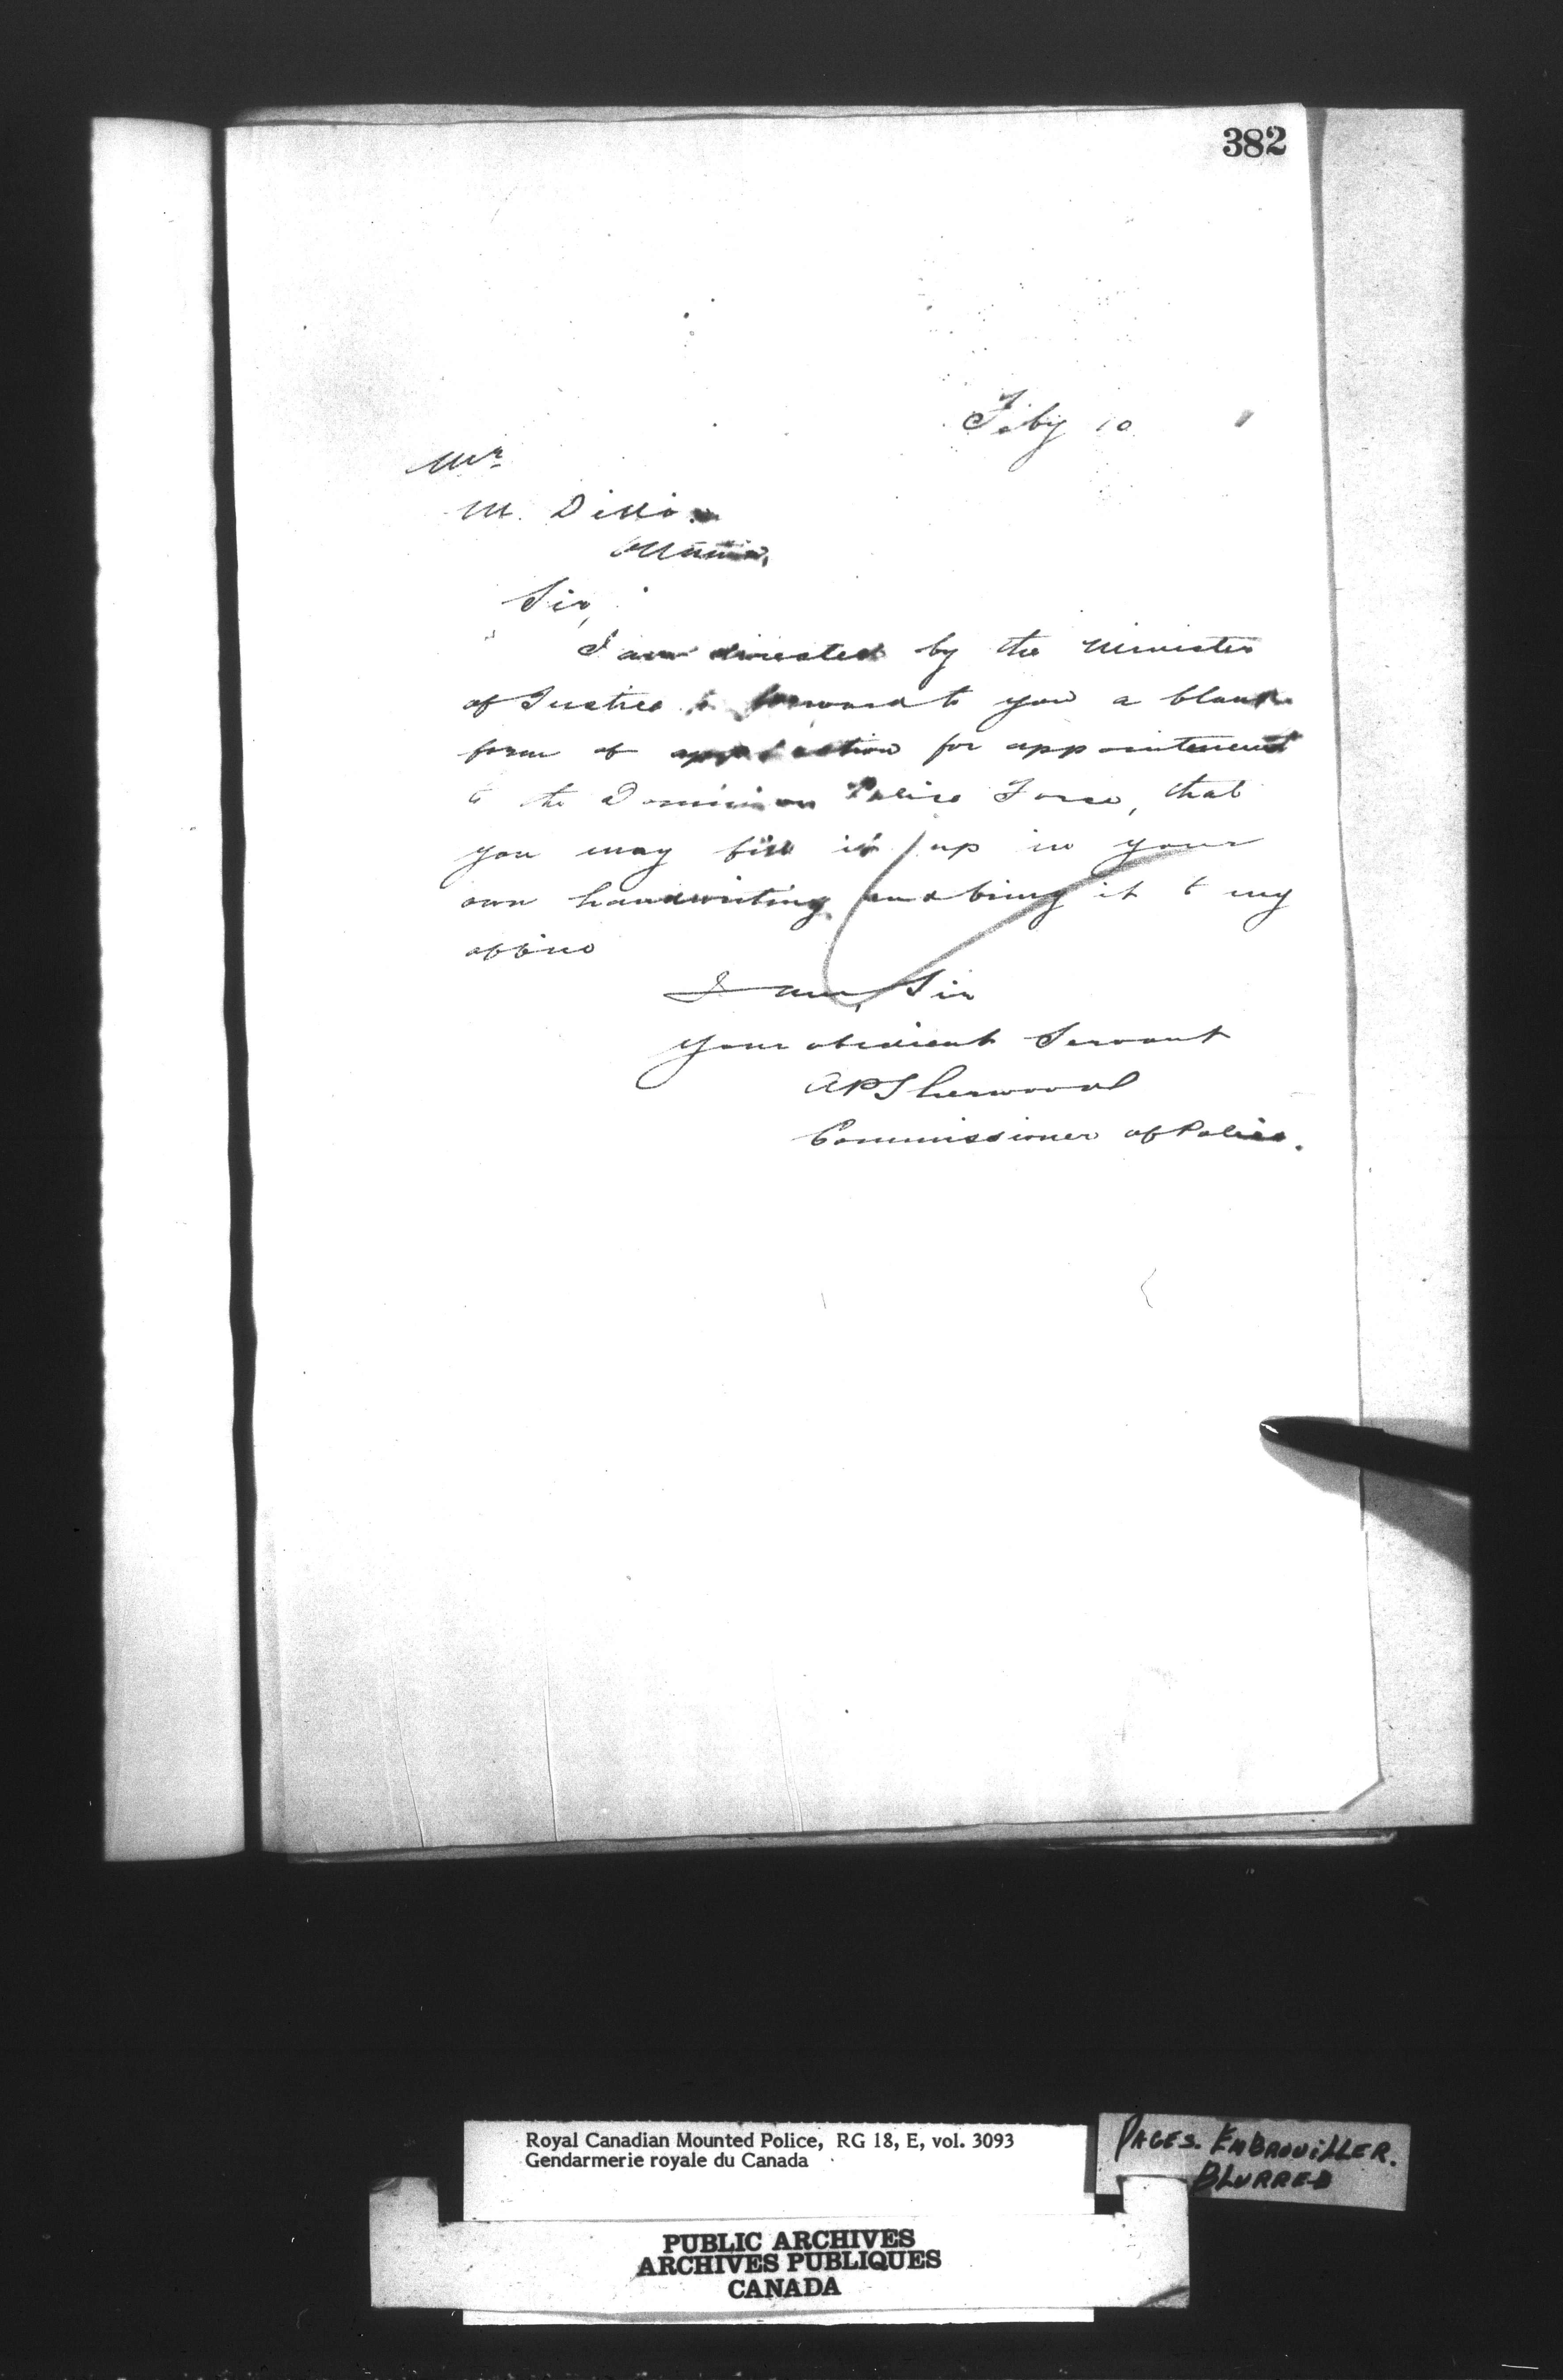 382
Feby 10
Mr
M. Dillon
Ottawa,
Sir,
I am directed by the Minister
of Justice to forward to you a blank
form of application for appointment
to the Dominion Police Force, that
you may fill it up in your
own handwriting and bring it to my
office
I am, Sir
Your obedient Servant
APSherwood
Commissioner of Police.
Royal Canadian Mounted Police, RG 18, E, vol. 3093
Gendarmerie royale du Canada
PAGES. EMBROUILLER.
BLURRED
PUBLIC ARCHIVES
ARCHIVES PUBLIQUES
CANADA